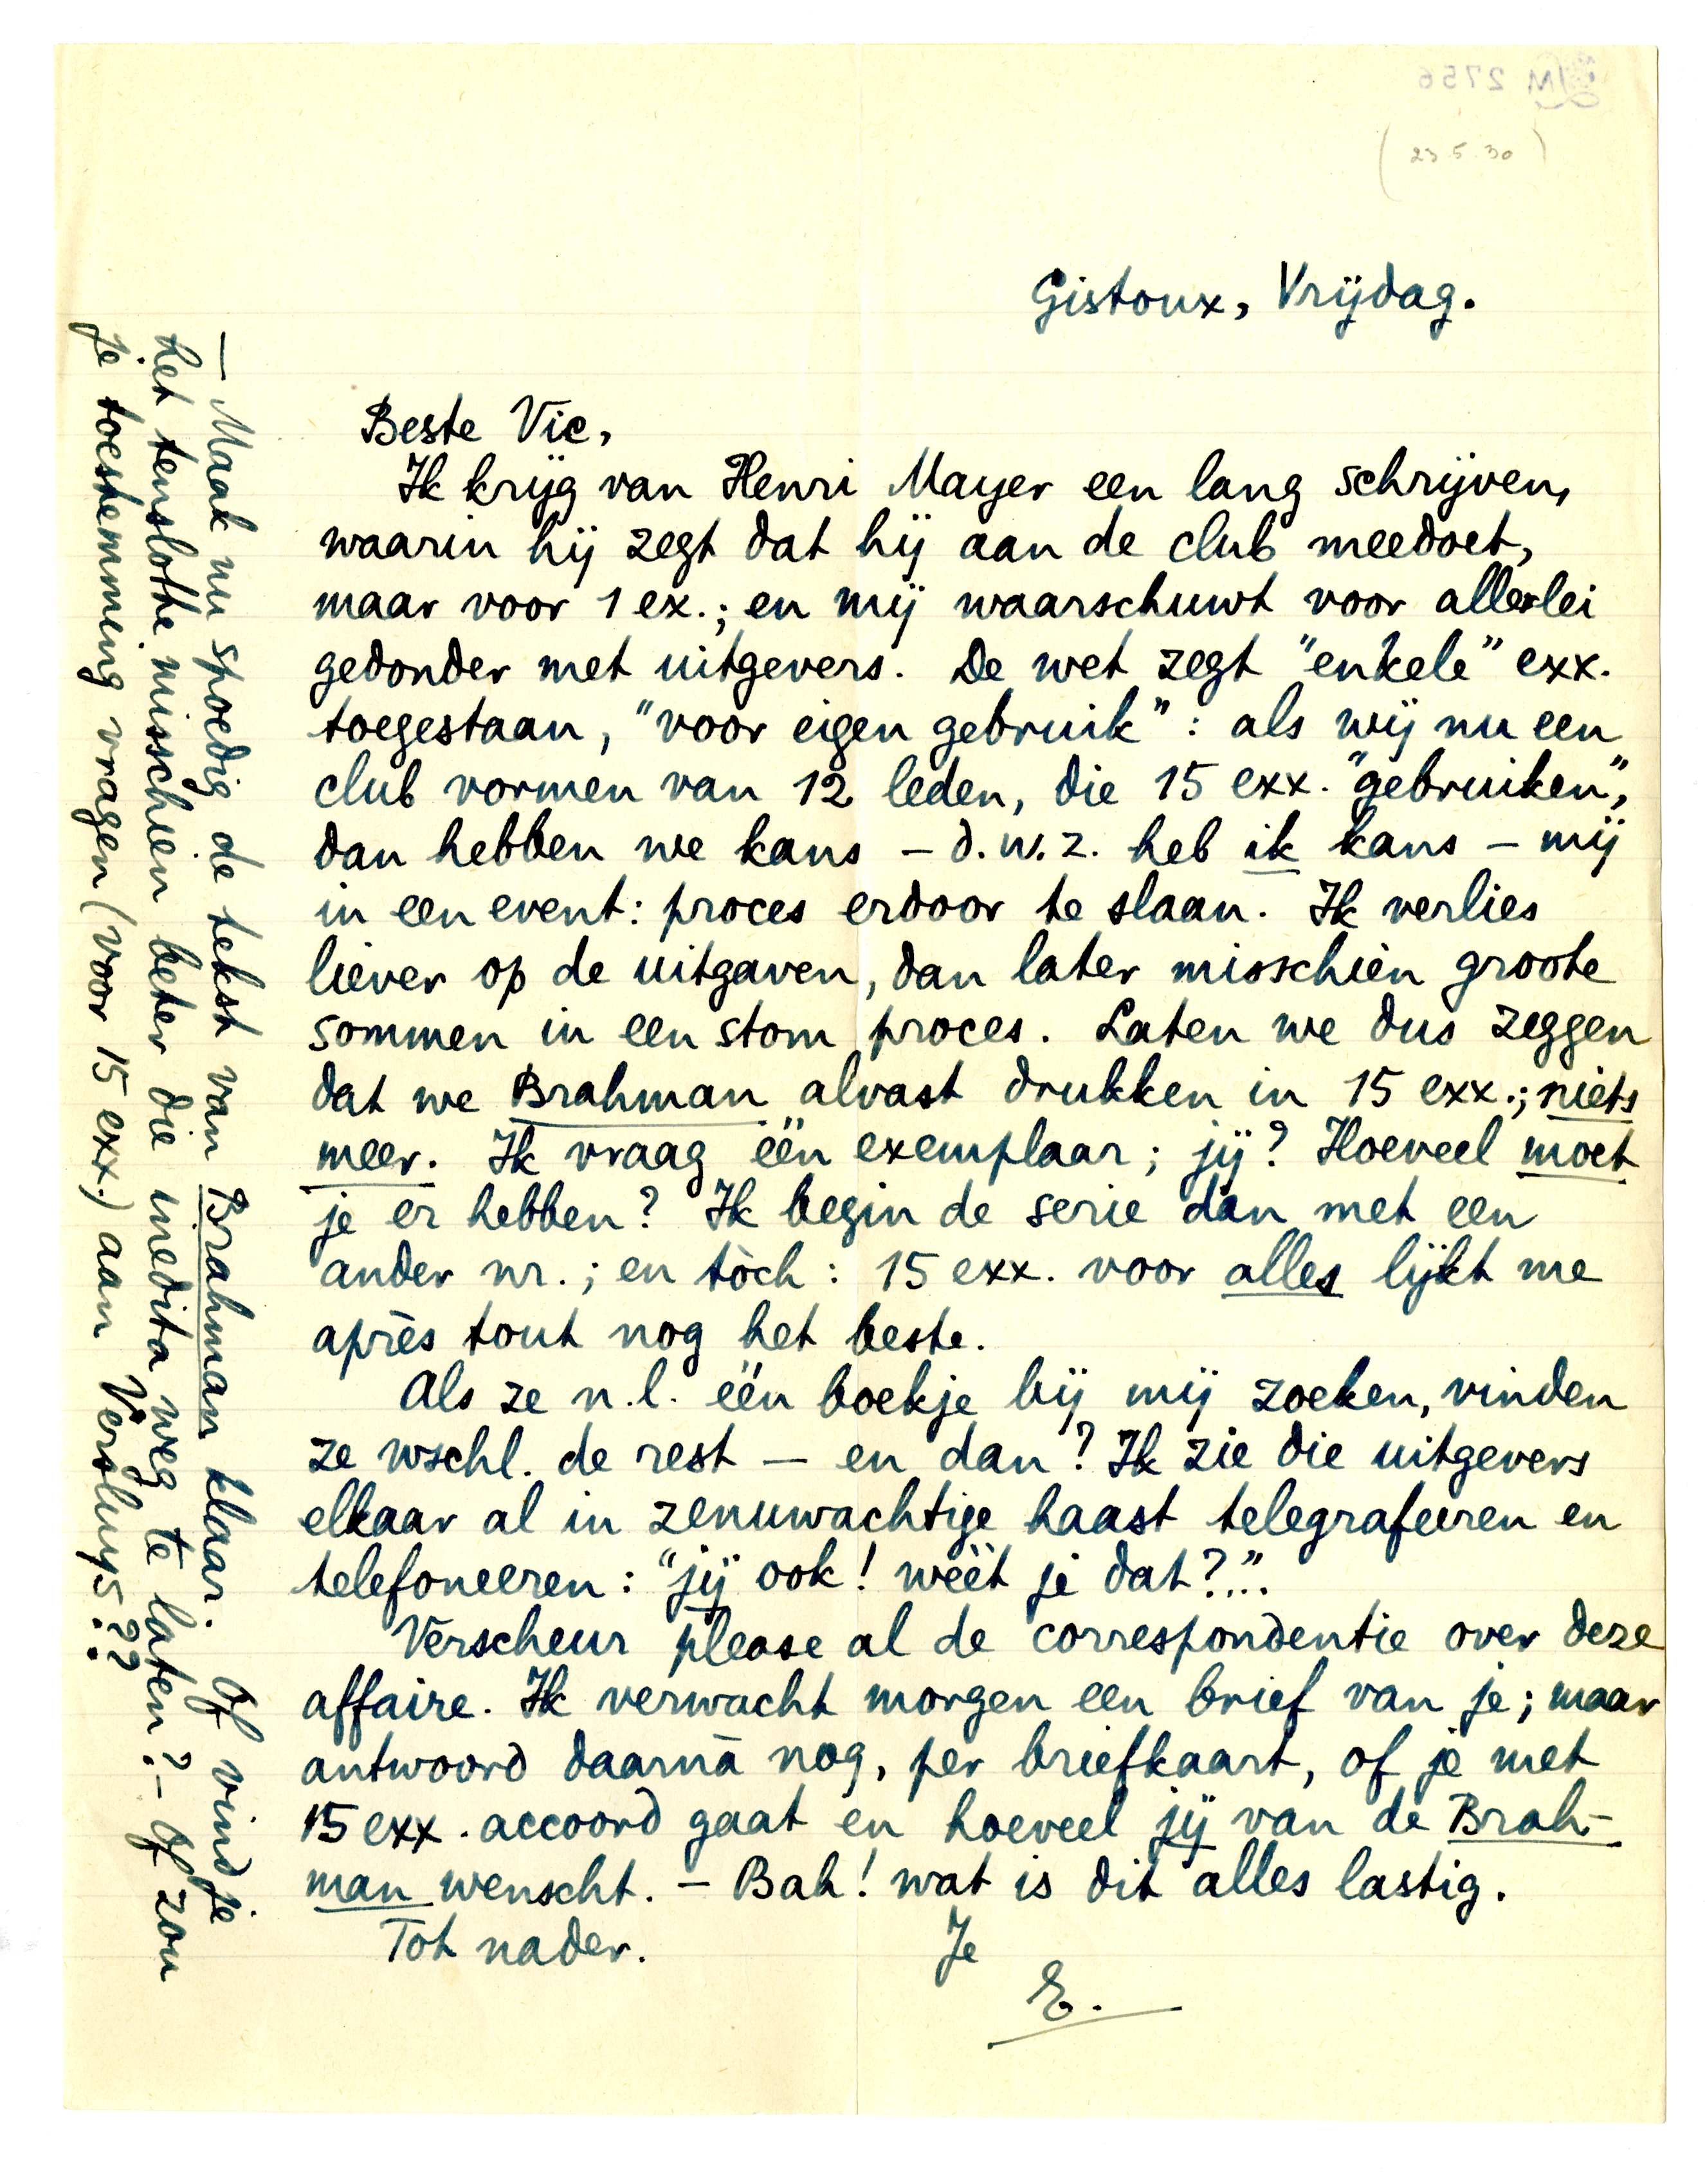 JM 2756
(23.5.30)
Gistoux, Vrijdag.
Beste Vic,
Ik krijg van Henri Mayer een lang schrijven,
waarin hij zegt dat hij aan de club meedoet,
maar voor 1 ex.; en mij waarschuwt voor allerlei
gedonder met uitgevers. De wet zegt "enkele" exx.
toegestaan, "voor eigen gebruik": als wij nu een
club vormen van 12 leden, die 15 exx. "gebruiken",
dan hebben we kans – d.w.z. heb ik kans – mij
in een event: proces erdoor te slaan. Ik verlies
liever op de uitgaven, dan later misschien groote
sommen in een stom proces. Laten we dus zeggen
dat we Brahman alvast drukken in 15 exx.; niets
meer. Ik vraag één exemplaar; jij? Hoeveel moet
je er hebben? Ik begin de serie dan met een
ander nr.; en tòch: 15 exx. voor alles lijkt me
après tout nog het beste.
Als ze n.l. één boekje bij mij zoeken, vinden
ze wschl. de rest – en dan? Ik zie die uitgevers
elkaar al in zenuwachtige haast telegrafeeren en
telefoneeren: "jij ook! wéét je dat?"...
Verscheur please al de correspondentie over deze
affaire. Ik verwacht morgen een brief van je; maar
antwoord daarnà nog, per briefkaart, of je met
15 exx. accoord gaat en hoeveel jij van de Brah-
man wenscht. – Bah! wat is dit alles lastig.
Tot nader. Je
E.
– Maak nu spoedig de tekst van Brahman klaar. Of vind je
het tenslotte misschien beter die inedita weg te laten? – Of zou
je toestemming vragen (voor 15 exx.) aan Versluys??